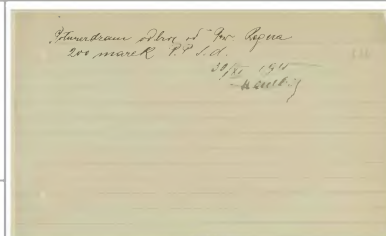 Potwierdzam odbiór od tow. Rogera
200 marek P.P.S.d.
30/XI 191